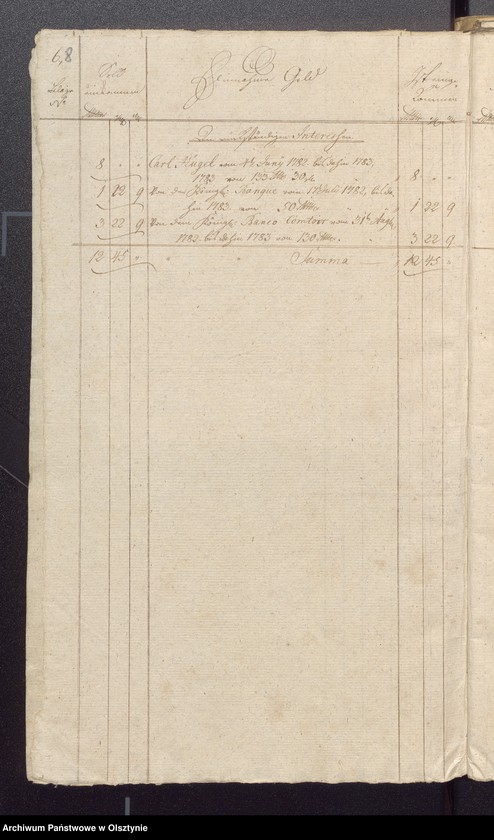 68
Soll
einkommen
Einnahme Geld
Ist einge-
kommen
Belege
No
An rückständigen Interessen
8 " " Carl Nagel vom 4t Juny 1782 bis dahin 1783,
1783 von 133 Rtlr 30 8 " "
1 22 9 Von der Königl. Banque vom 1782, bis da-
hin 1783 von 50 Rtlr. 1 22 9
3 22 9 Von dem Königl. Banco Comtoir vom 31t Aug.
1782 bis dahin 1783 von 130 Rtlr. 3 22 9
12 45 " Summa 12 45 "
Archiwum Państwowe w Olsztynie